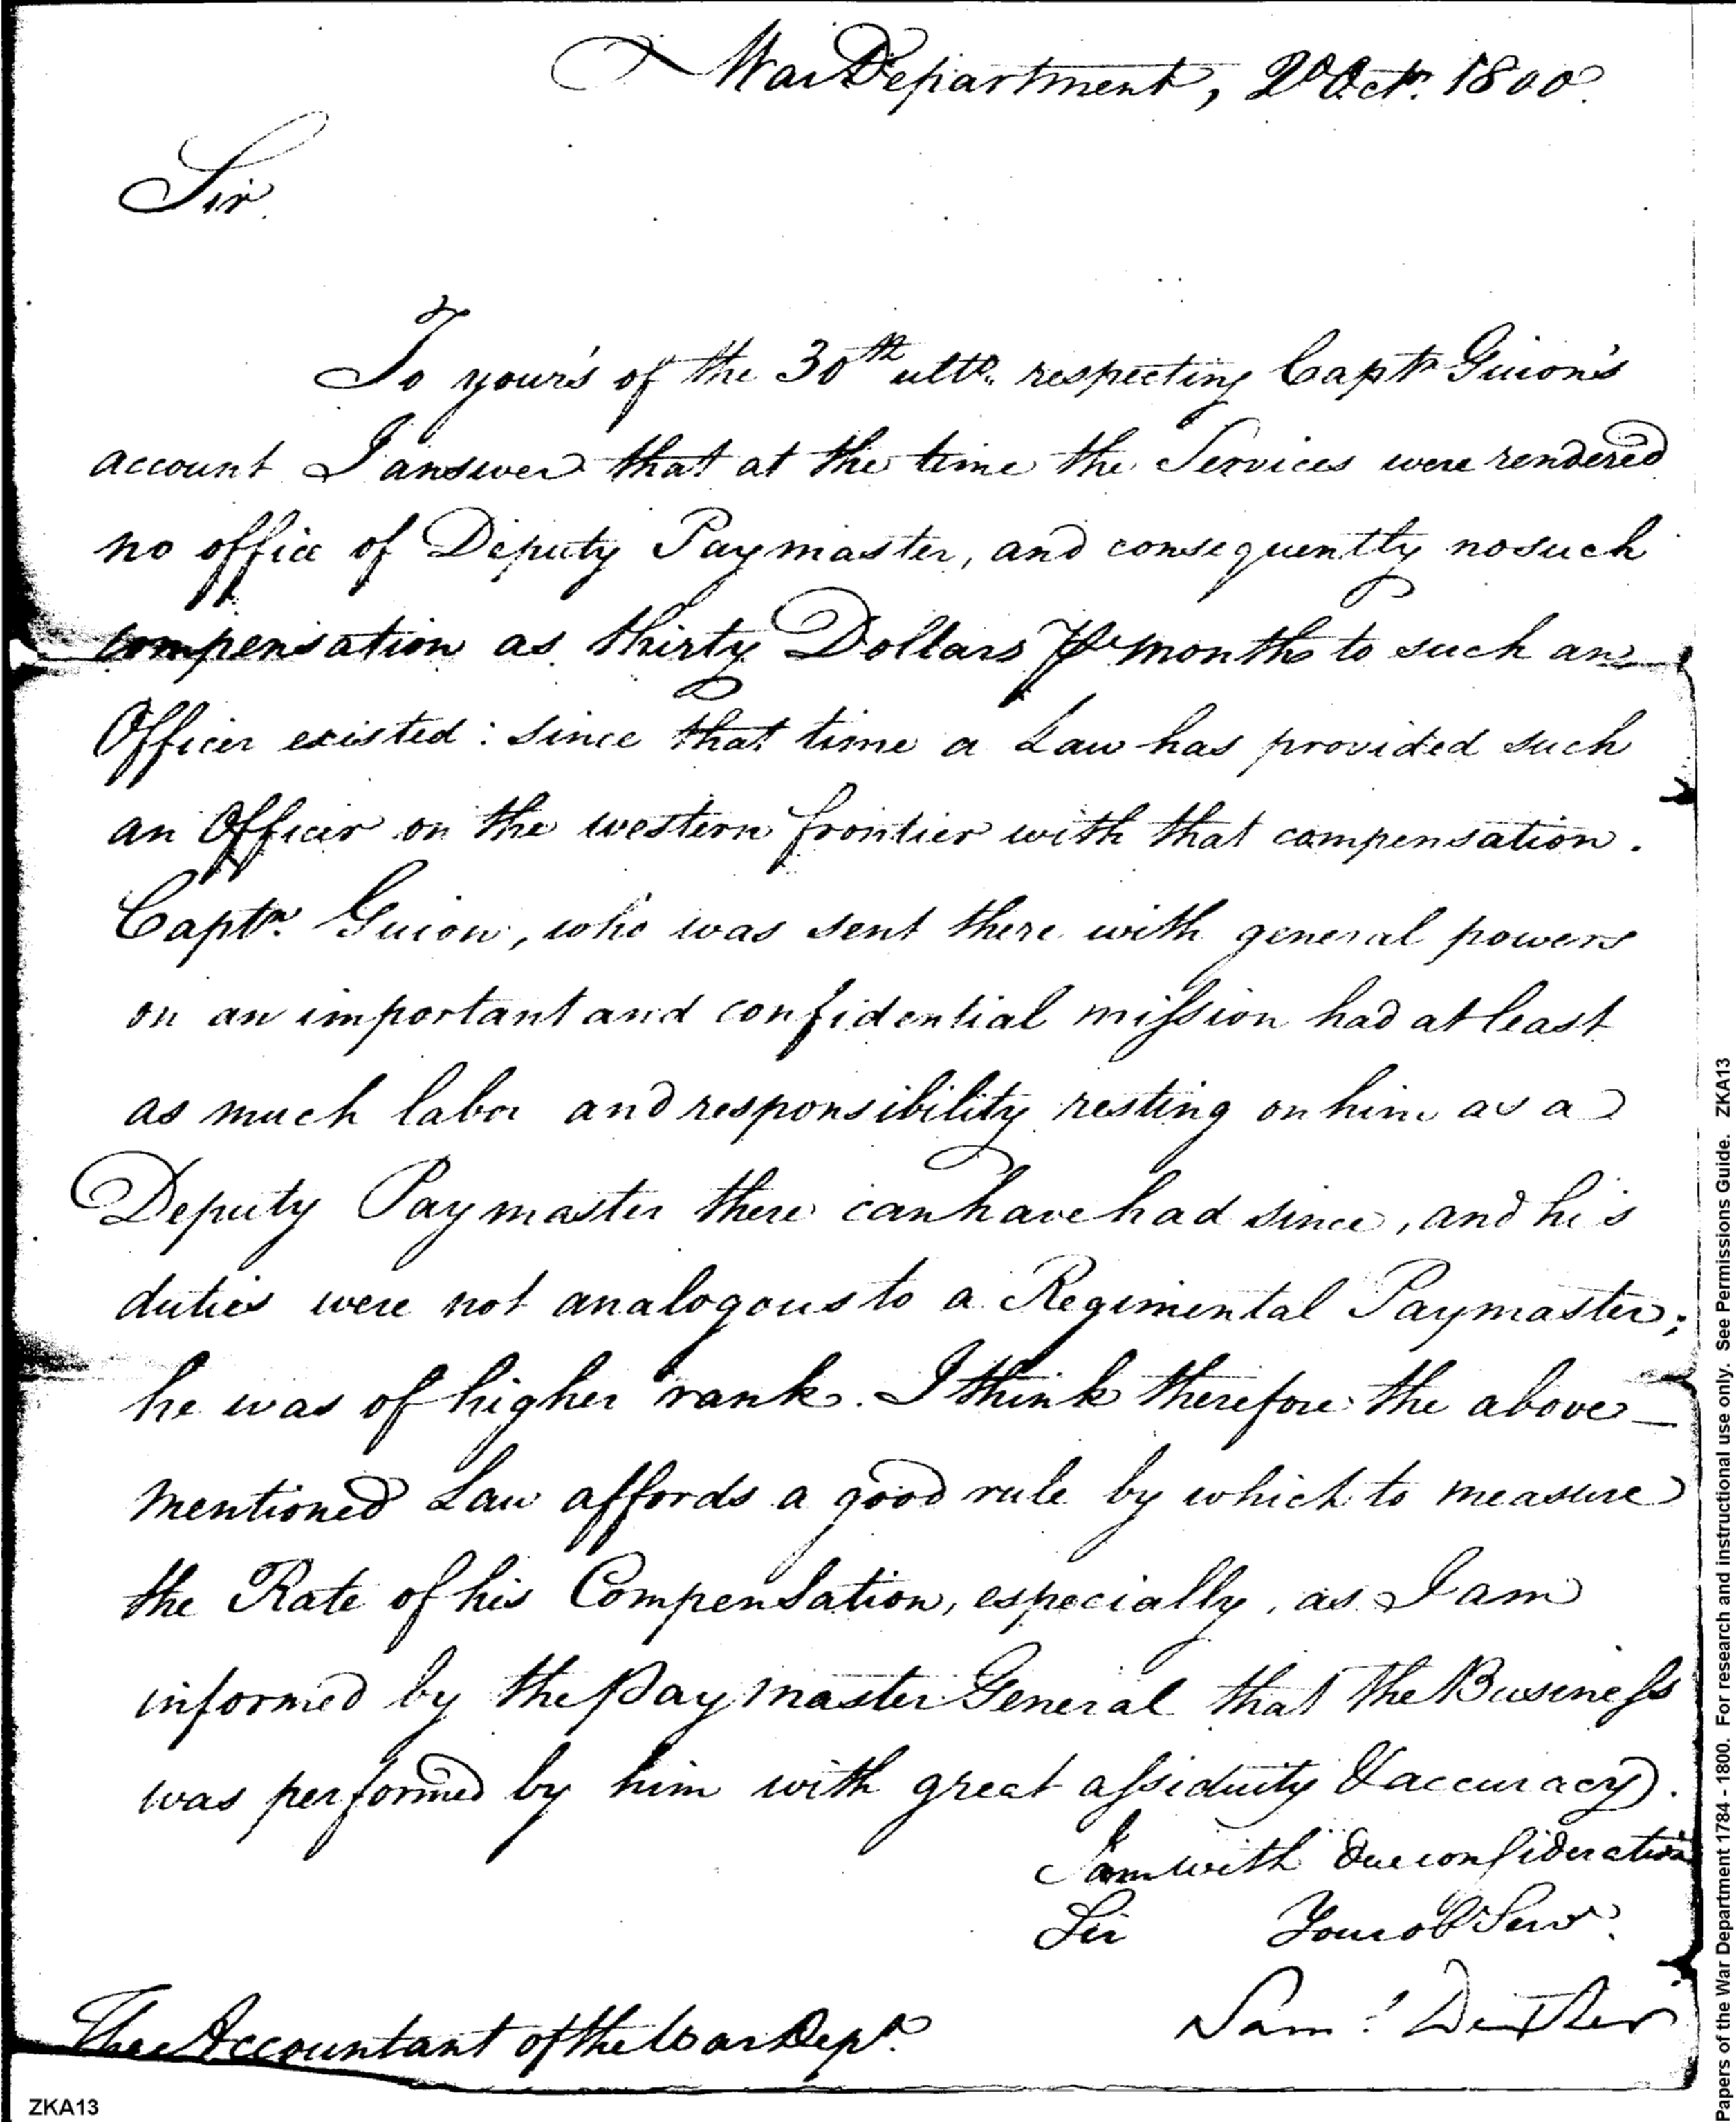 War Department, 2d Octr. 1800.
Sir.
To your's of the 30th ulto. respecting Captn Guion's
account I answer that at the time the Services were rendered
no office of Deputy Paymaster, and consequently no such
compensation as thirty Dollars ⅌ month to such an
Officer existed: since that time a Law has provided such
an Officer on the western frontier with that compensation.
Captn. Guion, who was sent there with general powers
on an important and confidential mission had at least
as much labor and responsibility resting on him as a
Deputy Paymaster there can have had since, and his
duties were not analogous to a Regimental Paymaster;
he was of higher rank. I think therefore the above
mentioned Law affords a good rule by which to measure
the Rate of his Compensation, especially, as I am
informed by the Paymaster General that the Business
was performed by him with great assiduity & accuracy.
I am with due consideration
Sir Your ob Serv.
Saml. Dexter
The Accountant of the War Dept.
ZKA13
Papers of the War Department 1784 - 1800. For research and instructional use only. See Permissions Guide. ZKA13